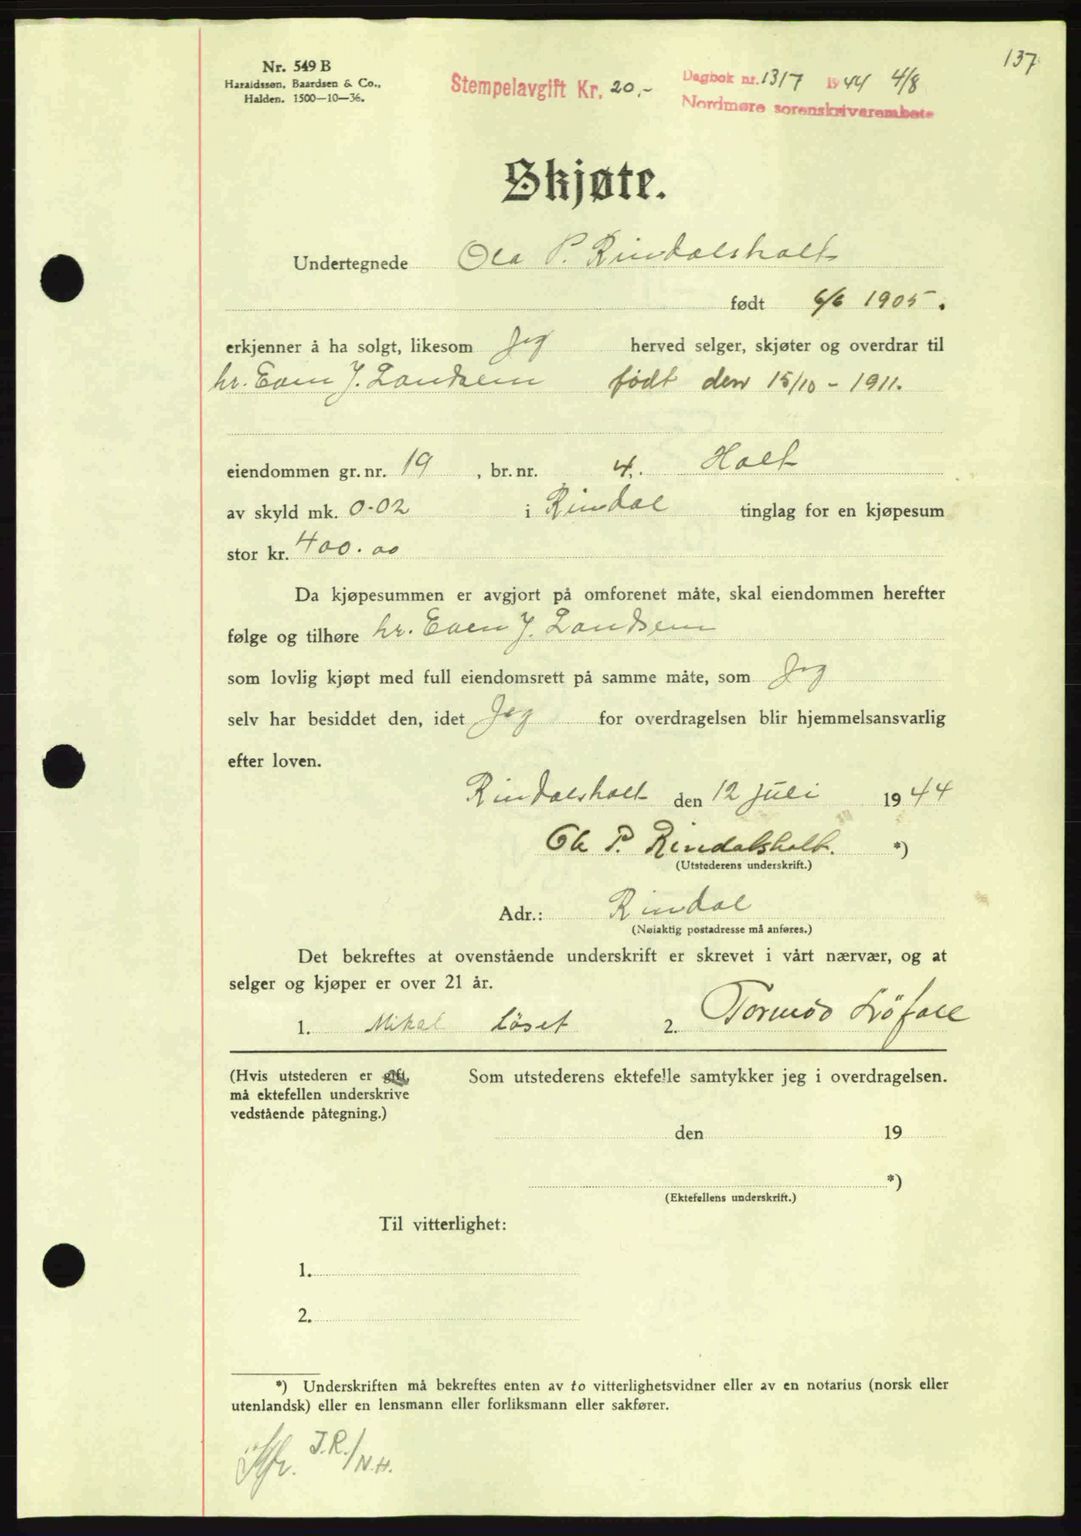 137
Nr. 549 B
Haraldssøn, Baardsen & Co.,
Halden. 1500—10—36.
Stempelavgift Kr. 20,-
Dagbok nr. 1317 1944 4/8
Nordmøre sorenskriverembete
Skjøte.
Undertegnede Ola P. Rindalsholt
født 6/6 1905.
erkjenner å ha solgt, likesom Jeg herved selger, skjøter og overdrar til
hr. Even J. Landsem født den 15/10 - 1911.
eiendommen gr. nr. 19, br. nr. 4. Holt
av skyld mk. 0-02 i Rindal tinglag for en kjøpesum
stor kr. 400.00
Da kjøpesummen er avgjort på omforenet måte, skal eiendommen herefter
følge og tilhøre hr. Even J. Landsem
som lovlig kjøpt med full eiendomsrett på samme måte, som Jeg
selv har besiddet den, idet Jeg for overdragelsen blir hjemmelsansvarlig
efter loven.
Rindalsholt den 12 juli 1944
Ola P. Rindalsholt. *)
(Utstederens underskrift.)
Adr.: Rindal
(Nøiaktig postadresse må anføres.)
Det bekreftes at ovenstående underskrift er skrevet i vårt nærvær, og at
selger og kjøper er over 21 år.
1. Mikal Løset 2. Tormod Löfall
(Hvis utstederen er gift, Som utstederens ektefelle samtykker jeg i overdragelsen.
må ektefellen underskrive
vedstående påtegning.)
den 19
*)
(Ektefellens underskrift.)
Til vitterlighet:
1.
2.
*) Underskriften må bekreftes enten av to vitterlighetsvidner eller av en notarius (norsk eller
utenlandsk) eller en lensmann eller forliksmann eller sakfører.
J.R./N.H.